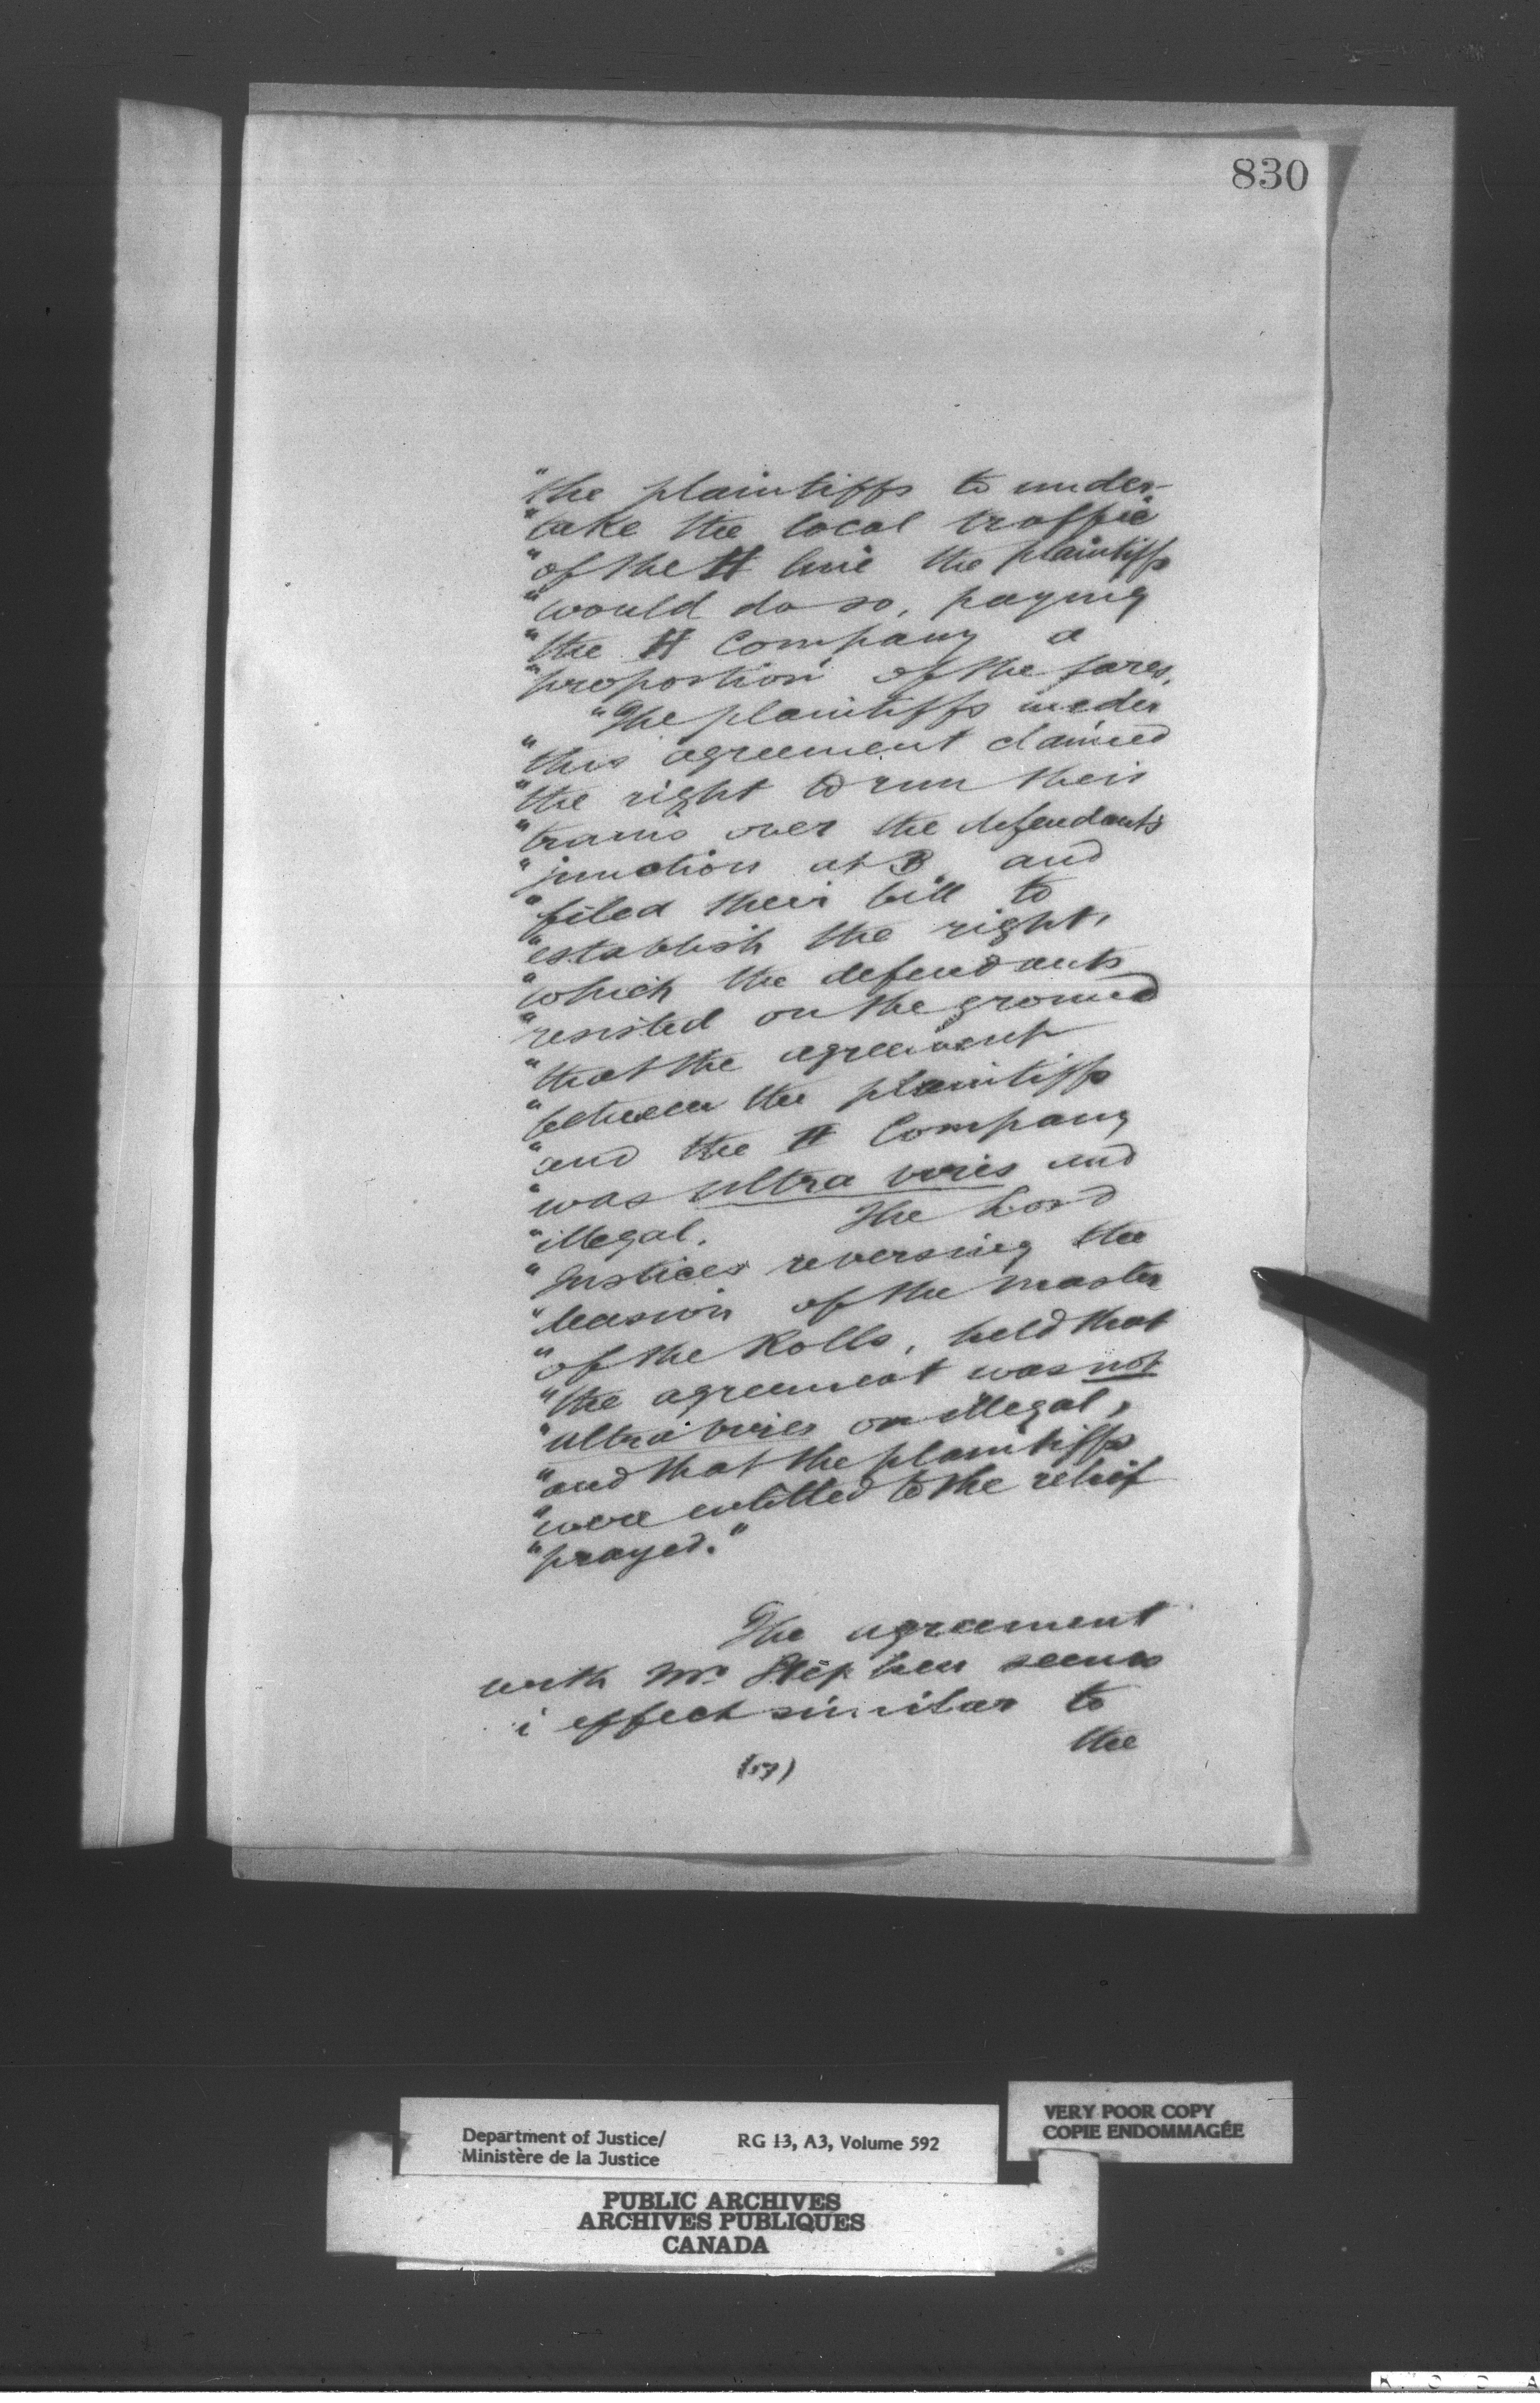 830
"the plaintiffs to under-
"take the local traffic
"of the H line the plaintiffs
"would do so, paying
"the H Company a
"proportion of the fares.
"The plaintiffs under
"this agreement claimed
"the right to run their
"trains over the defendants
"junction at B and
"filed their bill to
"establish the right,
"which the defendants
"resisted on the ground
"that the agreement
"between the plaintiffs
"and the H Company
"was ultra vires and
"illegal. The Lord
"Justices reversing the
"decision of the Master
"of the Rolls, held that
"the agreement was not
"ultra vires or illegal,
"and that the plaintiffs
"were entitled to the relief
"prayed."
The agreement
with Mr Stephen seems
i effect similar to
the
Department of Justice/
Ministère de la Justice
RG 13, A3, Volume 592
VERY POOR COPY
COPIE ENDOMMAGÉE
PUBLIC ARCHIVES
ARCHIVES PUBLIQUES
CANADA